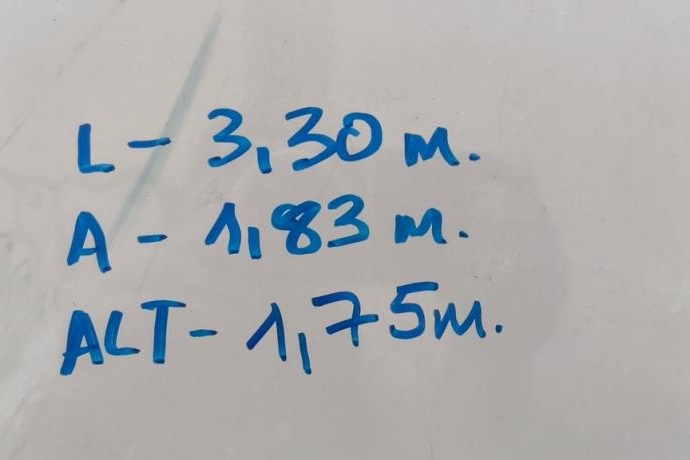 L - 3,30 m.
A - 1,83 m.
ALT - 1,75 m.